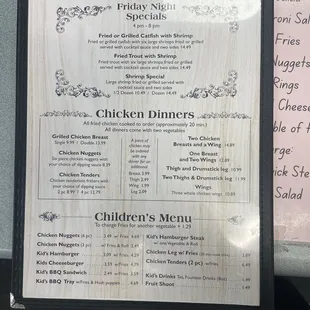 Friday Night
Specials
4 pm - 8 pm
Fried or Grilled Catfish with Shrimp
Fried or grilled catfish with six large shrimps fried or grilled
served with cocktail sauce and two sides 14.49
Fried Trout with Shrimp
Fried trout with six large shrimp fried or grilled
served with cocktail sauce and two sides 14.49
Shrimp Special
Large shrimp fried or grilled served with
cocktail sauce and two sides
1/2 Dozen 10.49 Dozen 14.49
Chicken Dinners
All fried chicken cooked to order (approximately 20 min.)
All dinners come with two vegetables
Grilled Chicken Breast
Single 9.99 Double 13.99
Chicken Nuggets
Six piece chicken nuggets with
your choice of dipping sauce 8.39
Chicken Tenders
Chicken tenderloins fritters with
your choice of dipping sauce
2 pc 8.99
A piece of
chicken
may be
ordered
with any
dinner for
an
additional:
Breast 3.99
Thigh 2.49
Wing 1.99
Leg 2.09
Two Chicken
Breasts and a Wing
One Breast
and Two Wings
Thigh and Drumstick leg
Two Thighs & Drumstick leg
Wings
Three whole chicken wings
Children's Menu
To change Fries for another vegetable + 1.29
Chicken Nuggets (4 pc)
Chicken Nuggets w/Fries & Roll
Kid's Hamburger w/Fries
Kid's Cheeseburger w/Fries
Kid's BBQ Sandwich w/Fries
Kid's BBQ Tray w/Fries & hush puppies
Kid's Hamburger Steak
w/ one Vegetable & Roll
Chicken Leg w/ Fries (Small)
Chicken Tenders (2 pc) w/Fries
Kid's Drinks Tea, Fountain Drinks
Fruit Shoot
Fries
Nuggets
Rings
Cheese
Salad